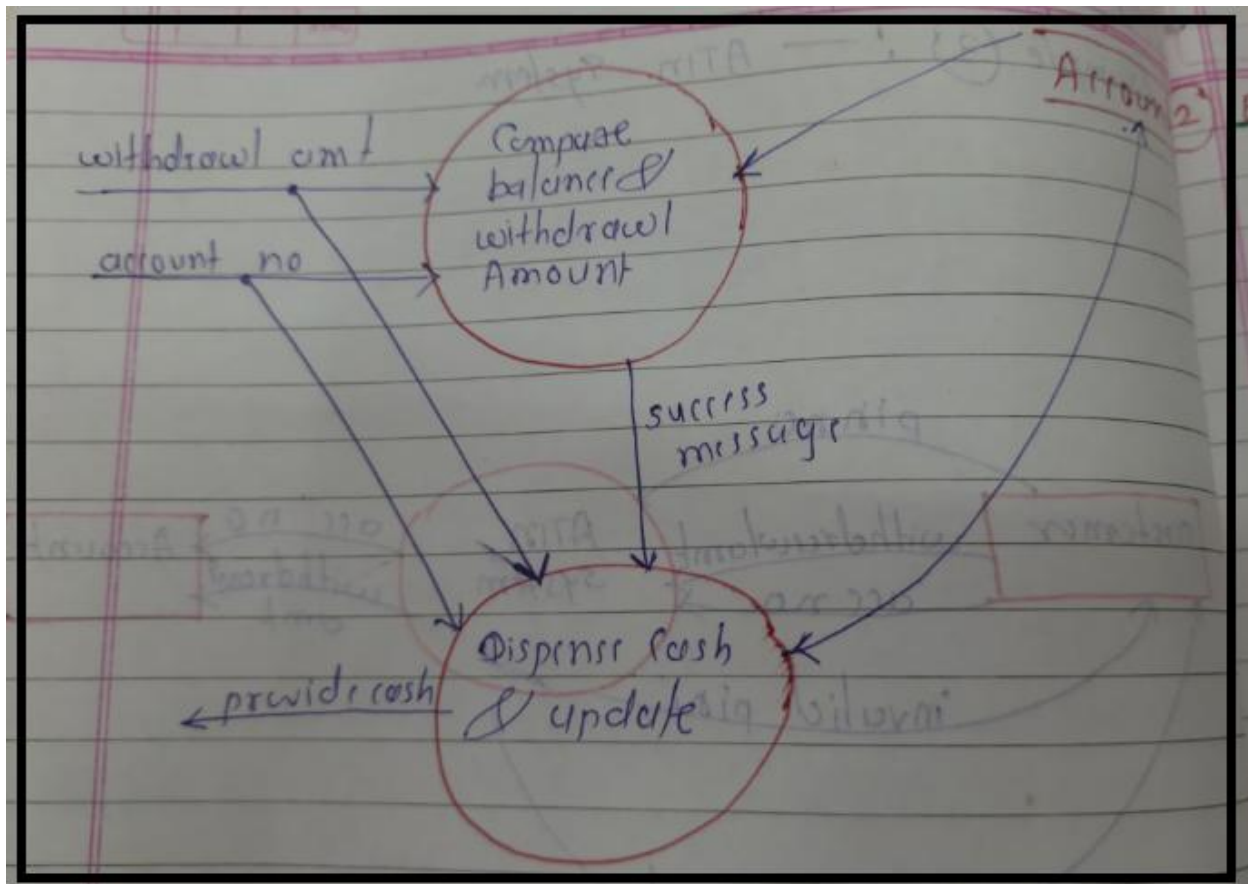 Account
withdrawl amt
account no
Compare
balance &
withdrawl
Amount
success
message
Dispense Cash
& update
provide cash